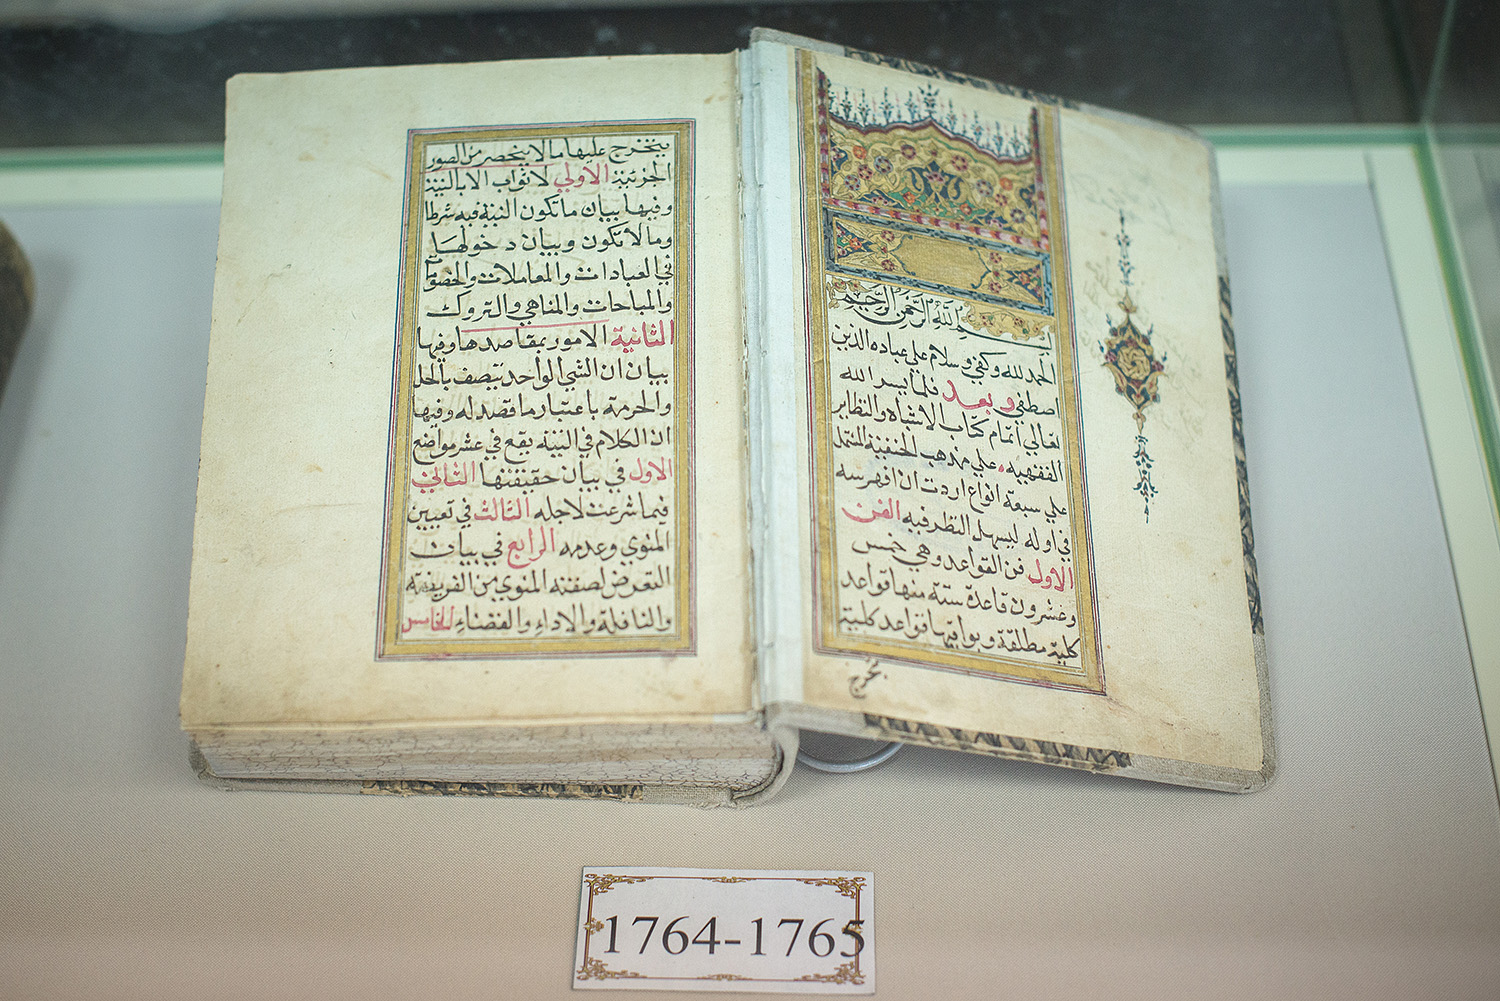 بسم الله الرحمن الرحيم
الحمد لله وكفي وسلام علي عباده الذين
اصطفي وبعد فلما يسر الله
تعالي اتمام كتاب الاشباه والنظاير
الفقهيه علي مذهب الحنفية المشتمل
علي سبعة انواع اردت ان افهرسه
في اوله ليسهل النظر فيه الفن
الاول فن القواعد وهي خمس
وعشرون قاعدة ستة منها قواعد
كلية مطلقة وبواقيها قواعد كلية
يتخرج عليها ما لا ينحصر من الصور
الجزئية الاولي لا ثواب الا بالنية
وفيها بيان ما تكون النية فيه شرطا
وما لا تكون وبيان دخولها
في العبادات والمعاملات والخصومات
والمباحات والمناهي والتروك
الثانية الامور بمقاصدها وفيها
بيان ان الشي الواحد يتصف بالحل
والحرمة باعتبار ما قصد له وفيها
ان الكلام في النية يقع في عشر مواضع
الاول في بيان حقيقتها الثاني
فيما شرعت لاجله الثالث في تعيين
المنوي وعدمه الرابع في بيان
التعرض لصفة المنوي من الفريضة
والنافلة والاداء والقضاء الخامس
1764-1765